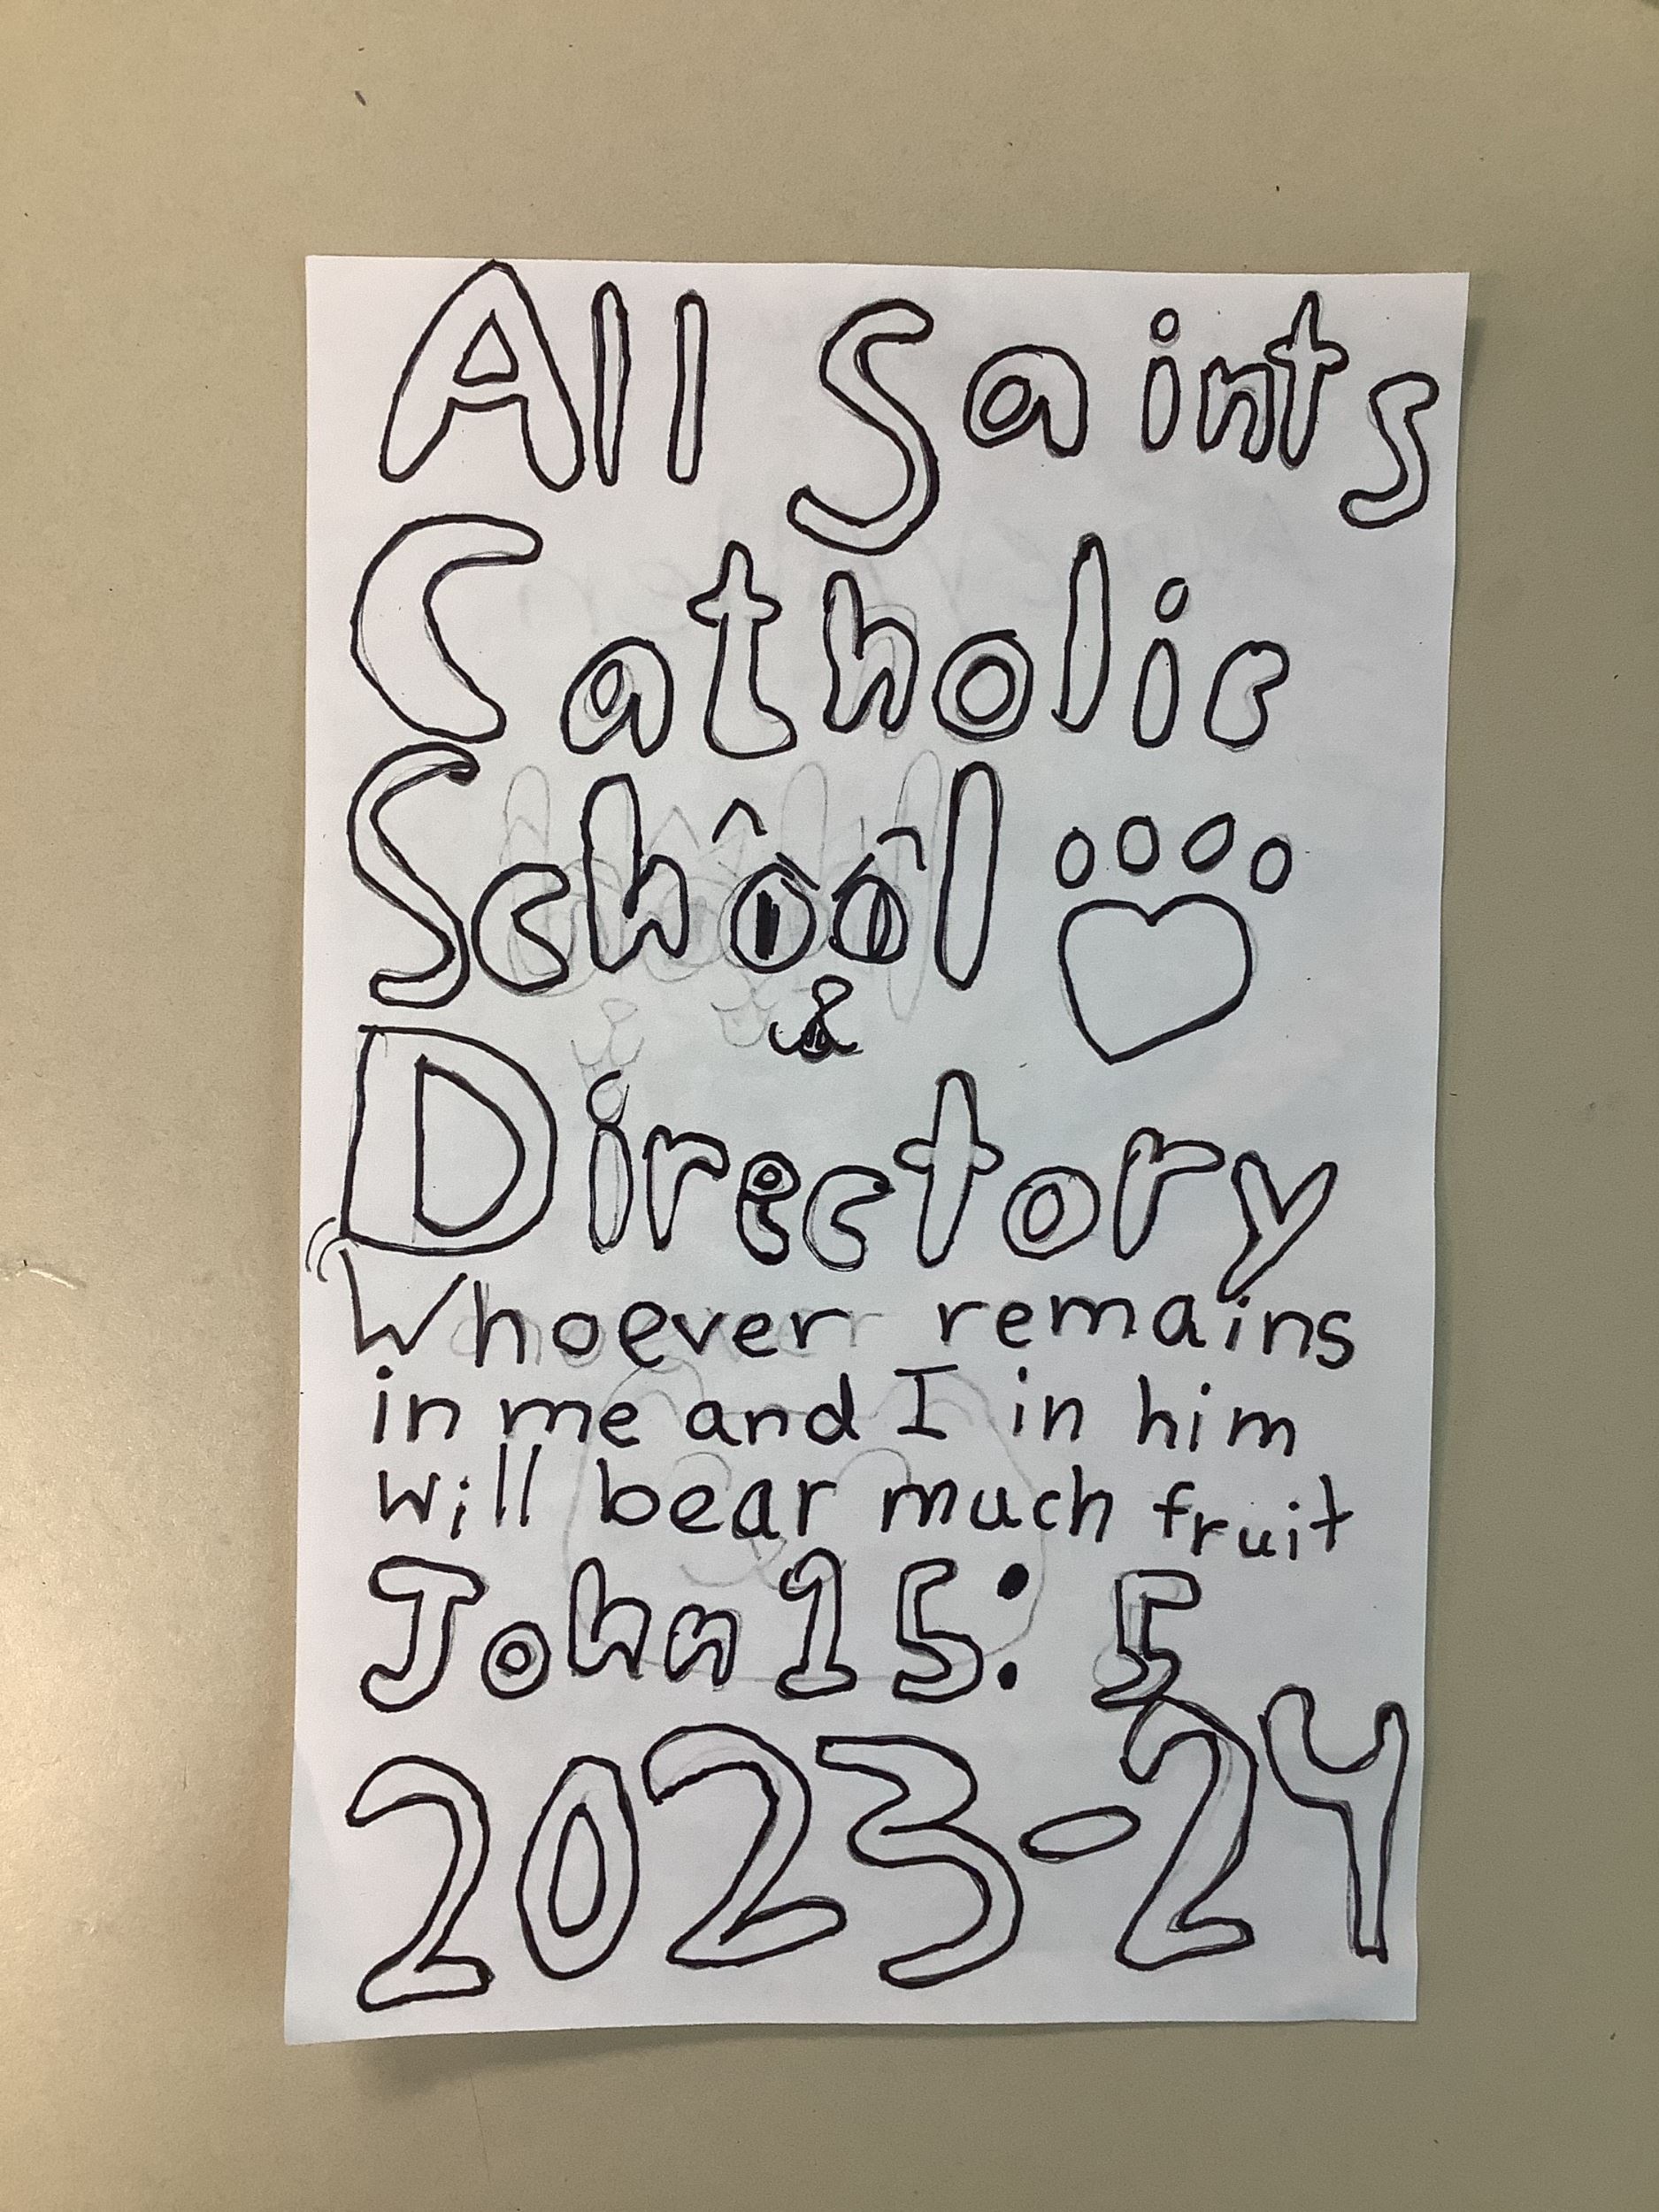 All Saints
Catholic
School
Directory
Whoever remains
in me and I in him
will bear much fruit
John 15:5
2023-24